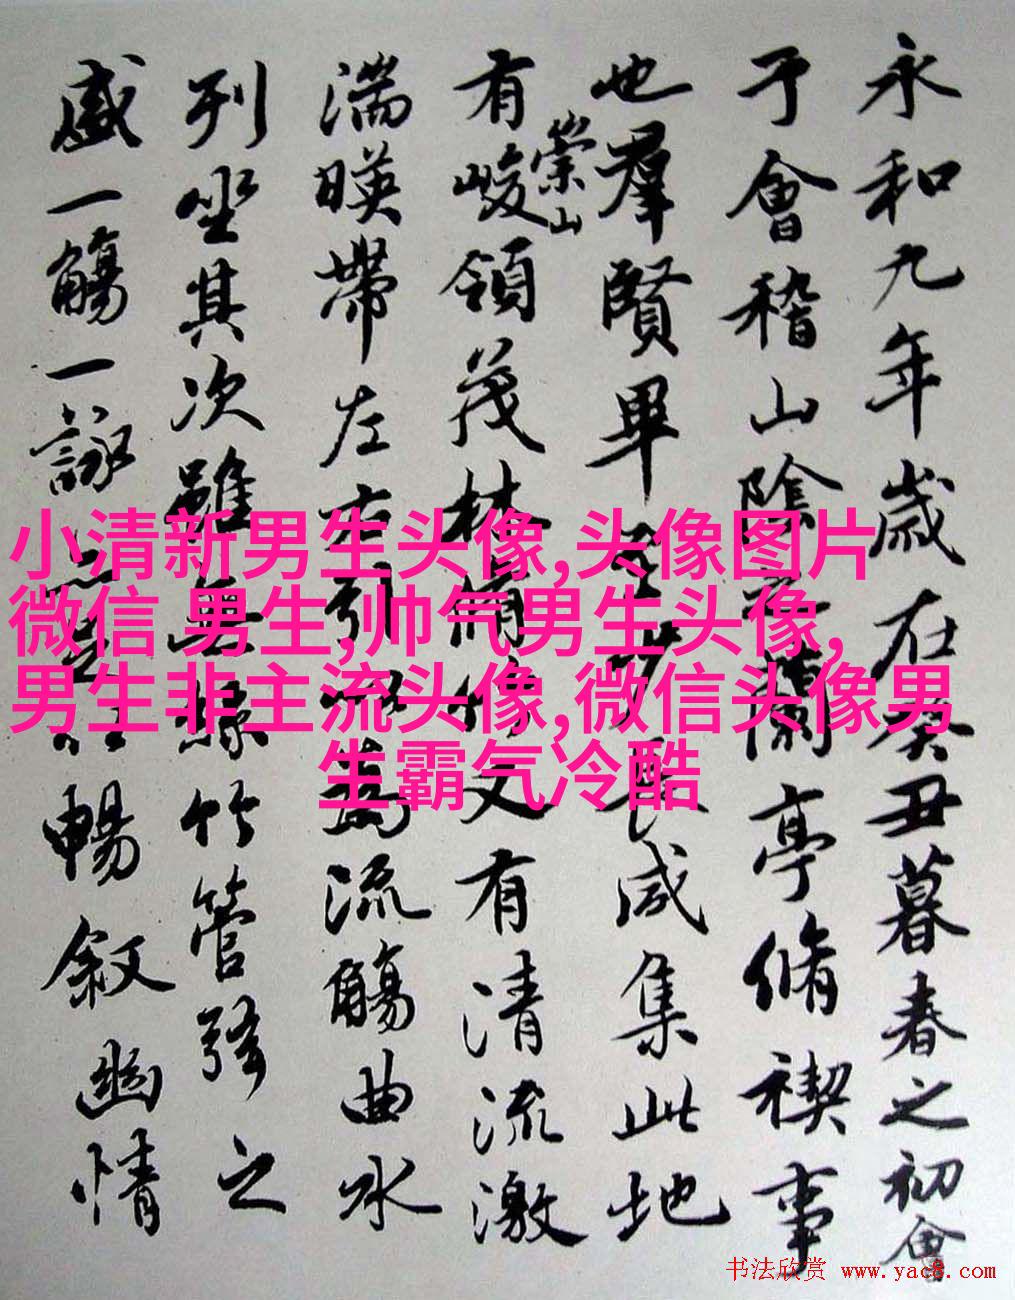 永和九年歲在癸丑暮春之初會
于會稽山陰之蘭亭脩禊事
也羣賢畢至少長咸集此地
有崇山峻領茂林脩竹又有清流激
湍暎帶左右引以為流觴曲水
列坐其次雖無絲竹管弦之
盛一觴一詠暢敘幽情
小清新男生头像,头像图片
微信 男生,帅气男生头像,
男生非主流头像,微信头像男
生霸气冷酷
书法欣赏 www.yac8.com